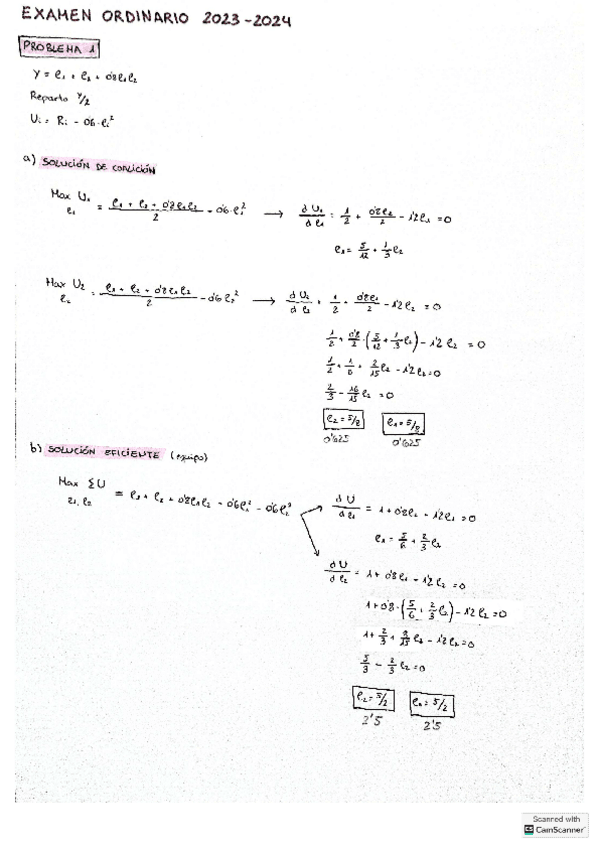 EXAMEN ORDINARIO 2023-2024
PROBLEMA 1
Y = e₁ + e₂ + 0'8e₁e₂
Reparto Y/2
Uᵢ = Rᵢ - 0'6·eᵢ²
a) SOLUCIÓN DE COALICIÓN
Max U₁ e₁ = (e₁ + e₂ + 0'8e₁e₂)/2 - 0'6·e₁² → dU₁/de₁ = 1/2 + 0'8e₂/2 - 1'2e₁ = 0
e₁ = 5/12 + 1/3 e₂
Max U₂ e₂ = (e₁ + e₂ + 0'8e₁e₂)/2 - 0'6e₂² → dU₂/de₂ = 1/2 + 0'8e₁/2 - 1'2e₂ = 0
1/2 + 0'8/2 · (5/12 + 1/3 e₂) - 1'2e₂ = 0
1/2 + 1/6 + 2/15 e₂ - 1'2e₂ = 0
2/3 - 16/15 e₂ = 0
e₂ = 5/8 e₁ = 5/8
0'625 0'625
b) SOLUCIÓN EFICIENTE (equipo)
Max ΣU e₁, e₂ = e₁ + e₂ + 0'8e₁e₂ - 0'6e₁² - 0'6e₂²
dU/de₁ = 1 + 0'8e₂ - 1'2e₁ = 0
e₁ = 5/6 + 2/3 e₂
dU/de₂ = 1 + 0'8e₁ - 1'2e₂ = 0
1 + 0'8 · (5/6 + 2/3 e₂) - 1'2e₂ = 0
1 + 2/3 + 8/15 e₂ - 1'2e₂ = 0
5/3 - 2/3 e₂ = 0
e₂ = 5/2 e₁ = 5/2
2'5 2'5
Scanned with
CamScanner